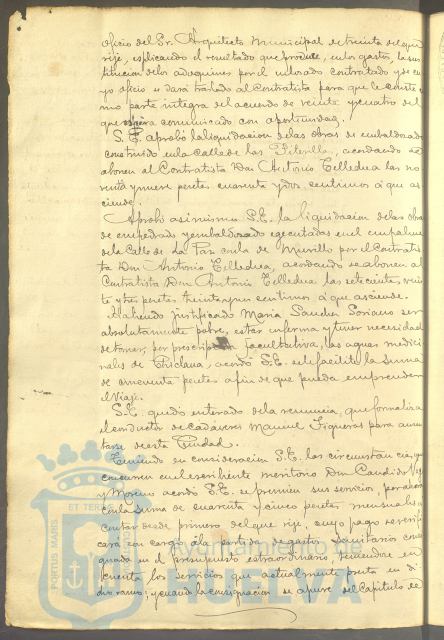 oficio del Sr. Arquitecto Municipal de treinta del que
rije, esplicando el resultado que produce, en los gastos, la sus
titucion de los adoquines por el enlosado contratado y de cu
yo oficio se dará traslado al Contratista para que le conste co
mo parte integra del acuerdo de veinte y cuatro del
que será comunicado con oportunidad.
S. E. aprobó la liquidacion de las obras de embaldosado
construido en la calle de las acordando se
abonen al Contratista Don Antonio Telledua las no
venta y nueve pesetas cuarenta y dos centimos á que as
ciende.
Aprobó asimismo S. E. la liquidacion de las obras
de empedrado y embaldosado ejecutadas en el empalme
de la Calle de La Paz con la de Murillo por el Contratis
ta Don Antonio Telledua, acordando se abonen al
Contratista Don Antonio Telledua las setecientas vein
te y tres pesetas treinta y un centimos á que asciende.
Habiendo justificado Maria Sanchez Soriano ser
absolutamente pobre, estar enferma y tener necesidad
de tomar, por prescripcion facultativa, las aguas medici
nales de Chiclana, acordó S. E. se le facilite la suma
de cincuenta pesetas a fin de que pueda emprender
el viaje.
S. E. quedó enterado de la renuncia, que formaliza
el conductor de cadáveres Manuel Figueroa para ausen
tarse de esta Ciudad.
Teniendo en consideracion S. E. las circunstancias, que
concurren en el escribiente meritorio Don Candido
y Moreno acordó S. E. se premien sus servicios, por ahora
con la suma de cuarenta y cinco pesetas mensuales á
contar desde primero del que rije, cuyo pago se verifi
cará con cargo á la partida de gastos Sanitarios con
signada en el presupuesto extraordinario teniendose en
cuenta los servicios que actualmente presta en di
cho ramo; y cuando la consignacion se apure del Capitulo de
PORTUS MARIS ET TERRÆ
Ayuntamiento de
HUELVA